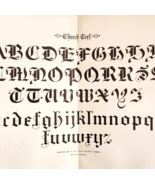 Church Text
ABCDEFGHI
JKLMNOPQRS
TTUVWXYZ
abcdefghijklmnopq
rstuvwxyz